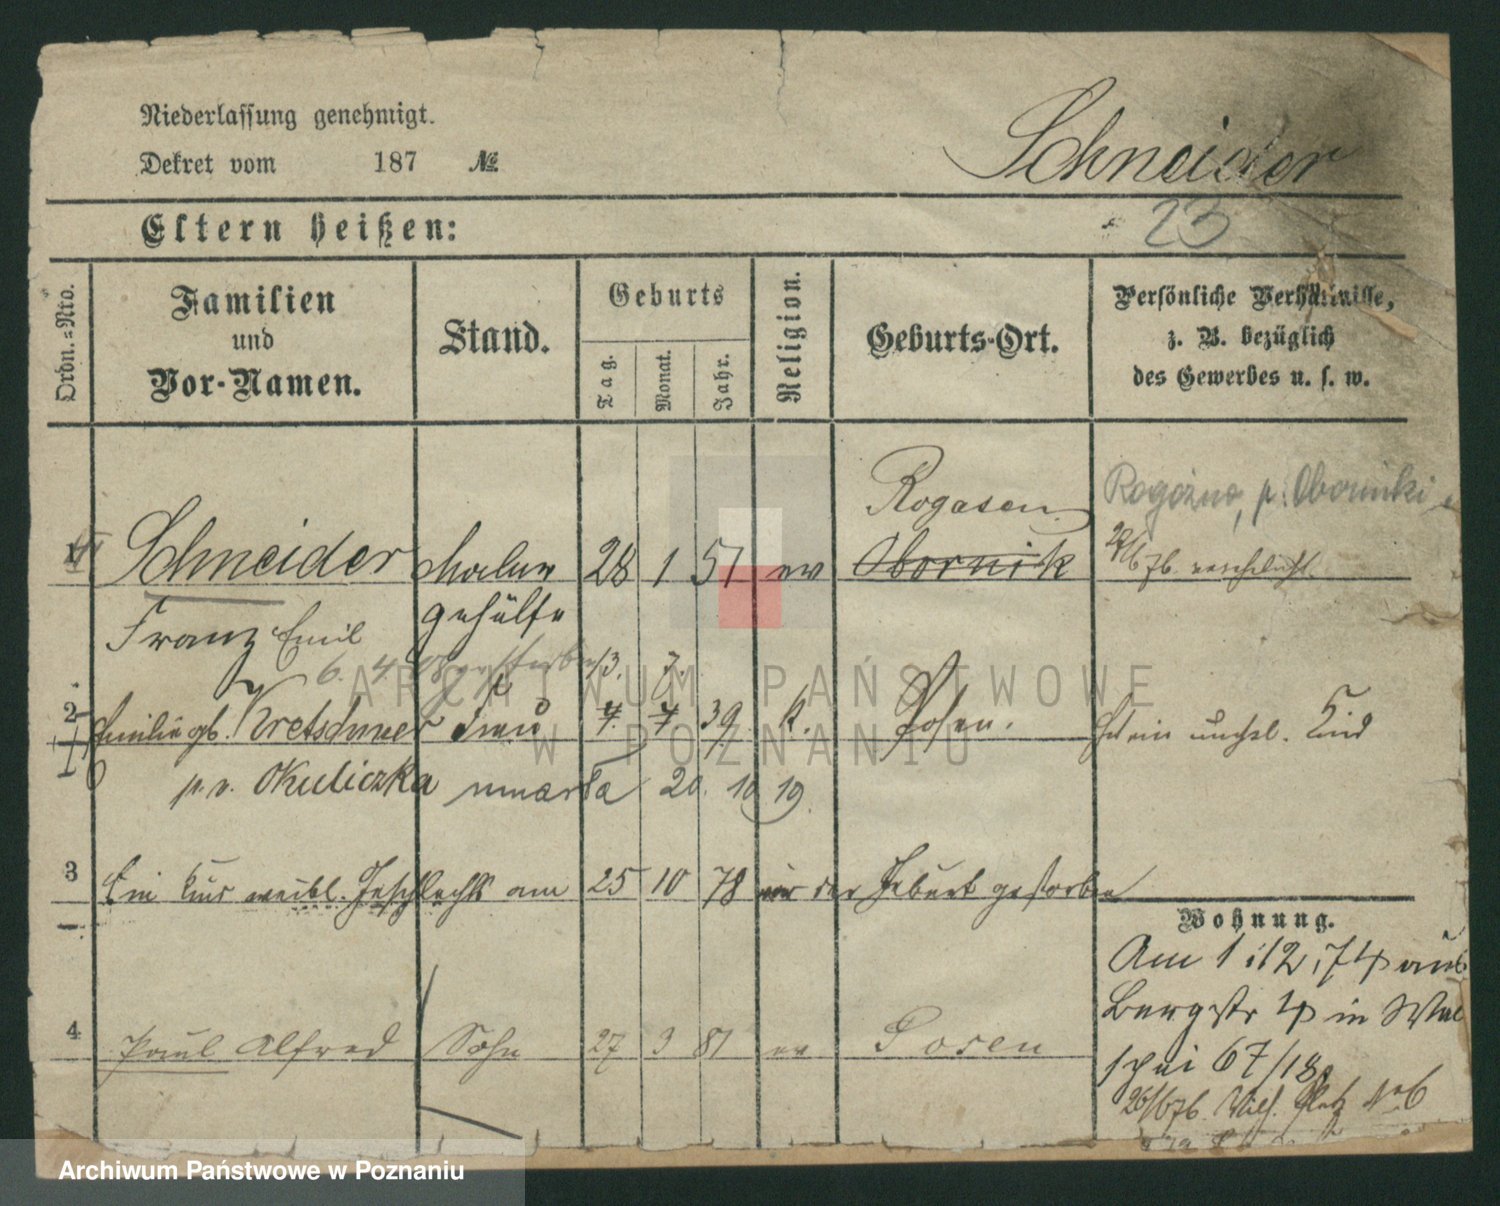 Niederlassung genehmigt.
Dekret vom 187 №
Schneider
Eltern heißen:
23
Ordn.=Nro.
Familien
und
Vor-Namen.
Stand.
Geburts
Tag.
Monat.
Jahr.
Religion.
Geburts-Ort.
Persönliche Verhältnisse,
z. B. bezüglich
des Gewerbes u. s. w.
Rogasen
Rogoźno, p. Oborniki
1 Schneider Maler 28 1 51 ev Obornik
gehülfe
Franz Emil
6. 4. 08 gestorben 13. 7.
2 Emilie gb. Kretschmer Frau 7. 7 39. k. Posen. Kind
p. v. Okuliczka umarła 20. 10 19.
3 Ein Kind weibl. Geschlechts am 25 10 78 in der Geburt gestorben
Wohnung.
Am 1/12, 74 aus
Bergstr 4 in Wal
lischei 67/18,
4 Paul Alfred Sohn 27 3 81 ev Posen
26/6 76. Wilh. Platz No 6
ARCHIWUM PAŃSTWOWE
W POZNANIU
Archiwum Państwowe w Poznaniu